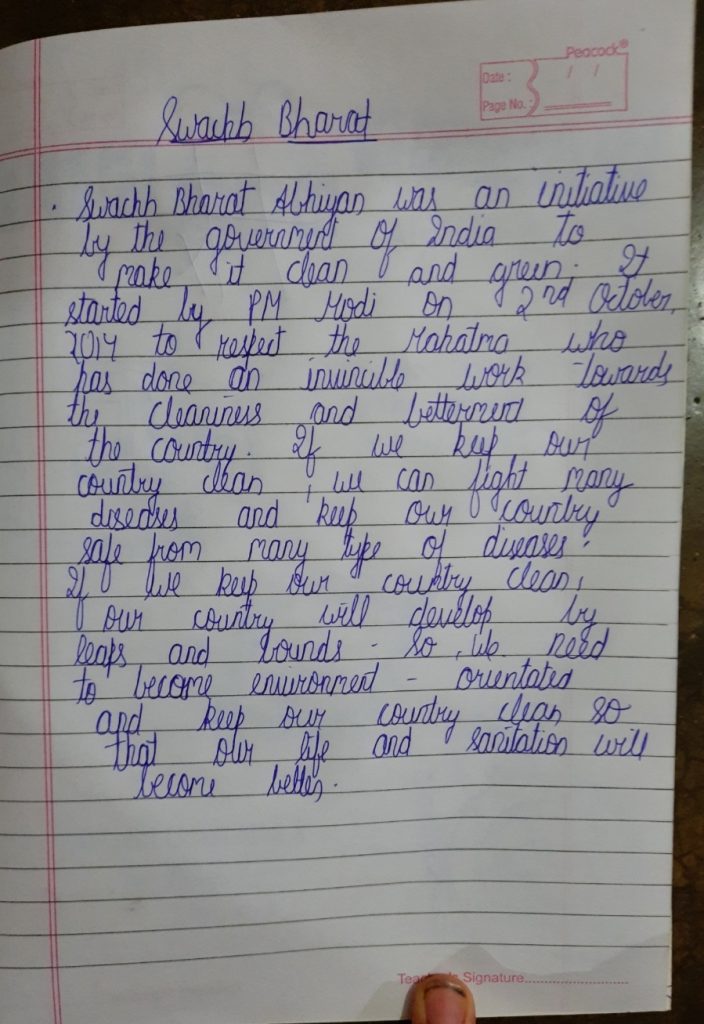 Peacock®
Date : / /
Page No. :
Swachh Bharat
. Swachh Bharat Abhiyan was an initiative
by the government of India to
make it clean and green. It
started by PM Modi on 2nd October,
2014 to respect the Mahatma who
has done an invincible work towards
the cleaniness and betterment of
the country. If we keep our
country clean , we can fight many
diseases and keep our country
safe from many type of diseases.
If we keep our country clean,
our country will develop by
leaps and bounds - so, we need
to become environment - orientated
and keep our country clean so
that our life and sanitation will
become better.
Teacher's Signature